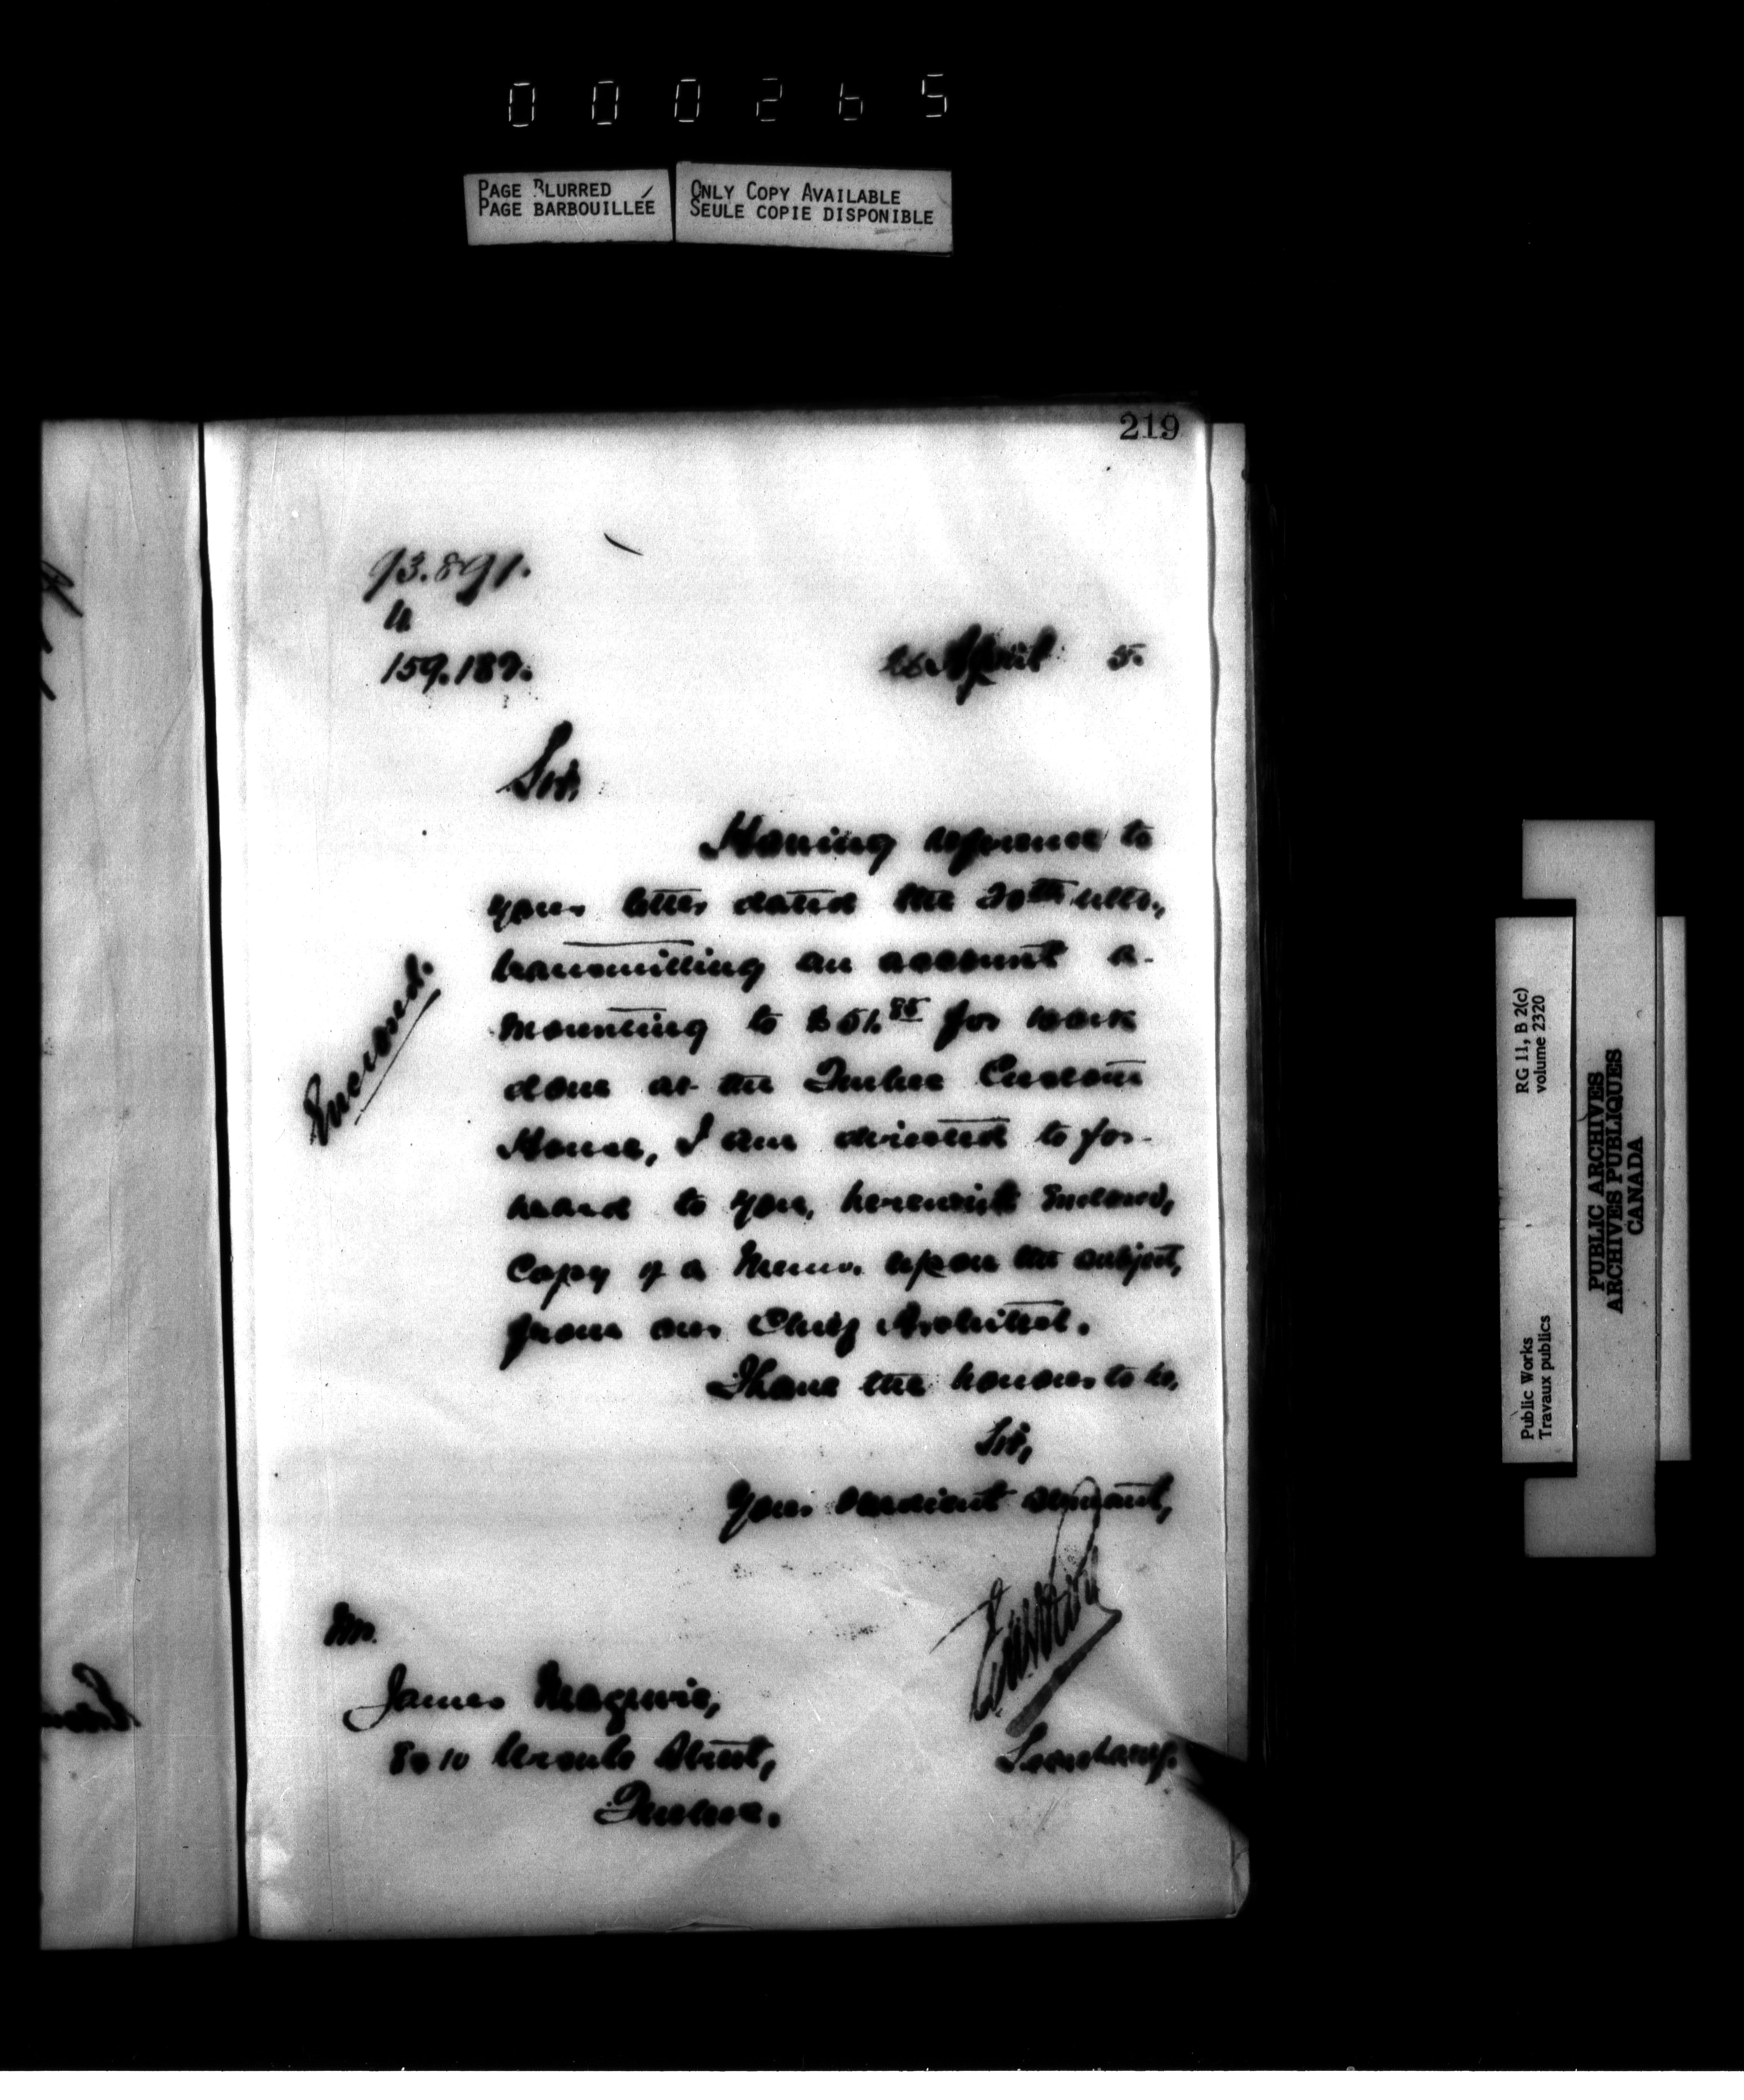 000265
PAGE BLURRED
PAGE BARBOUILLÉE
ONLY COPY AVAILABLE
SEULE COPIE DISPONIBLE
219
93.891.
159.189.
26 April 5.
Sir,
Having reference to
your letter dated the 20th ulto.,
transmitting an account a-
mounting to $51.85 for work
done at the Quebec Custom
House, I am directed to for-
ward to you, herewith enclosed,
Copy of a Memo. upon the subject,
from our Chief Architect.
I have the honour to be,
Sir,
Your obedient servant,
Secretary.
Mr.
James Maguire,
8 & 10 Ursule Street,
Quebec.
Enclosd.
Public Works
Travaux publics
RG 11, B 2(c)
volume 2320
PUBLIC ARCHIVES
ARCHIVES PUBLIQUES
CANADA